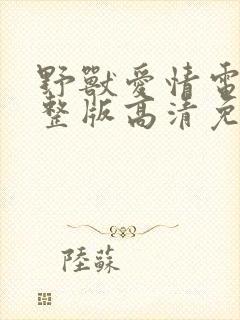 野獸愛情電
整版高清免
陸蘇